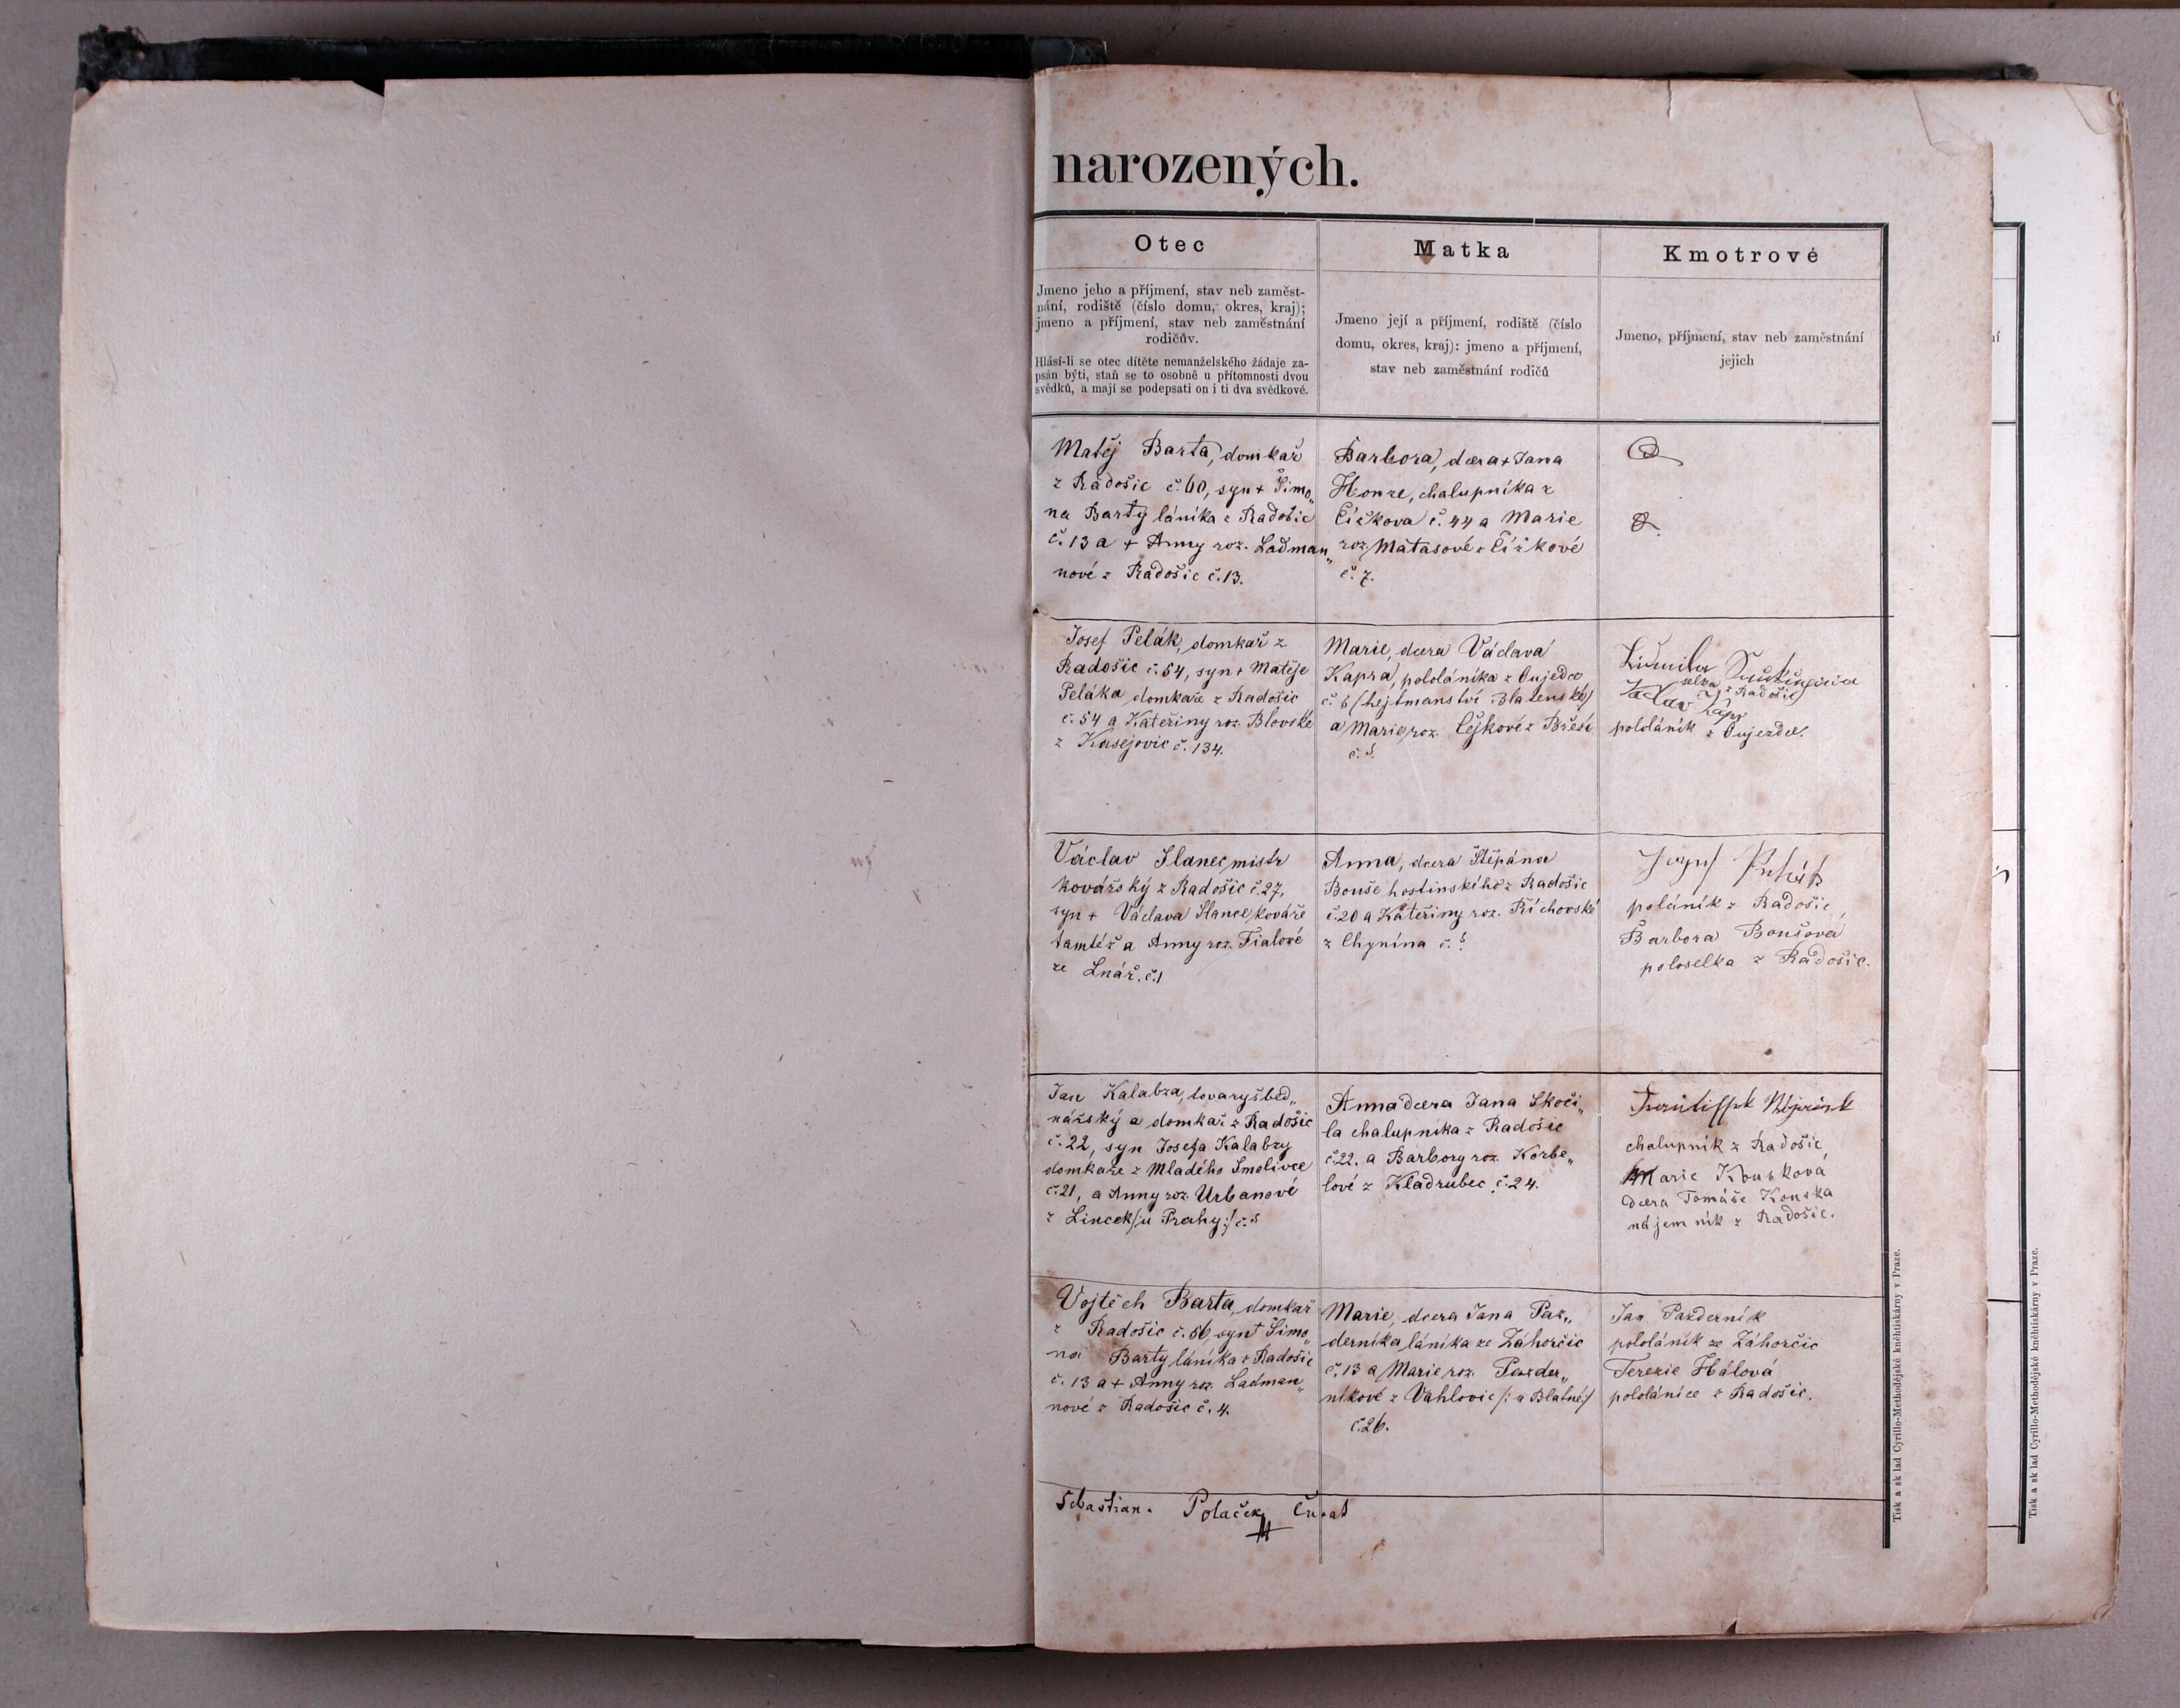 narozených.
Otec
Jmeno jeho a příjmení, stav neb zaměst-
nání, rodiště (číslo domu, okres, kraj);
jmeno a příjmení, stav neb zaměstnání
rodičův.
Hlásí-li se otec dítěte nemanželského žádaje za-
psán býti, staň se to osobně u přítomnosti dvou
svědků, a mají se podepsati on i ti dva svědkové.
Matka
Jmeno její a příjmení, rodiště (číslo
domu, okres, kraj): jmeno a příjmení,
stav neb zaměstnání rodičů
Kmotrové
Jmeno, příjmení, stav neb zaměstnání
jejich
Matěj Barta, domkař
z Radošic č. 60, syn + Šimo„
na Barty láníka z Radošic
č. 13 a + Anny roz. Ladman„
nové z Radošic č. 13.
Barbora, dcera + Jana
Honze, chalupníka z
Čížkova č. 44 a Marie
roz. Matasové z Čížkové
č. 7.
Josef Pelák, domkař z
Radošic č. 54, syn + Matěje
Peláka domkaře z Radošic
č. 54 a Kateřiny roz. Blovské
z Kasejovic č. 134.
Marie, dcera Václava
Kapra, pololáníka z Oujezdce
č. 8 /hejtmanství Blatenské/
a Marie, roz. Čejkové z Březí
č. 5.
Lidmila
selka z Radošic
Václav Kápr
pololáník z Oujezdce.
Václav Slanec, mistr
kovářský z Radošic č. 27,
syn + Václava Slance, kováře
tamtéž a Anny roz. Fialové
ze Lnář. č. 1
Anna, dcera Štěpána
Bouše hostinského z Radošic
č. 20 a Kateřiny roz. Říchovské
z Chynína č. ?
Josef
poláník z Radošic,
Barbora Boušová
poloselka z Radošic.
Jan Kalabza, tovaryš bed„
nářský a domkař z Radošic
č. 22, syn Josefa Kalabzy
domkaře z Mladého Smolivce
č. 21, a Anny roz. Urbanové
z Lincek /u Prahy:/ č. 5
Anna dcera Jana Skoči„
la chalupníka z Radošic
č. 22. a Barbory roz. Körbe„
lové z Kladrubec č. 24.
chalupník z Radošic,
Marie Kouskova
dcera Tomáše Kouska
nájemník z Radošic.
Vojtěch Barta, domkař
z Radošic č. 56, syn + Šimo„
na Barty láníka z Radošic
č. 13 a + Anny roz. Ladman„
nové z Radošic č. 4.
Marie, dcera Jana Paz„
derníka láníka ze Záhorčic
č. 13 a Marie, roz. Pazder„
níkové z Vahlovic /: u Blatné:/
č. 26.
Jan Pazderník
pololáník ze Záhorčic
Terezie Hálová
pololánice z Radošic.
Sebastian. Polaček
Tisk a sklad Cyrillo-Methodějské kněhtiskárny v Praze.
Tisk a sklad Cyrillo-Methodějské kněhtiskárny v Praze.